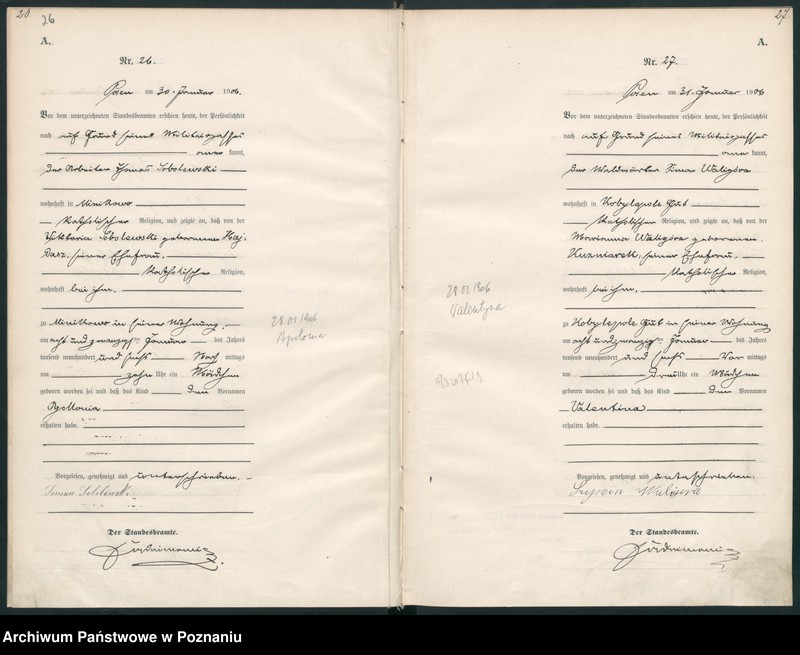 20
26
A.
Nr. 26.
Posen am 30. Januar 1906.
Vor dem unterzeichneten Standesbeamten erschien heute, der Persönlichkeit
nach auf Grund seines Militairpasses
kannt,
der Arbeiter Thomas Sobolewski
wohnhaft in Minikowo
katholischer Religion, und zeigte an, daß von der
Viktoria Sobolewski geborenen
seiner Ehefrau,
katholischer Religion,
wohnhaft bei ihm,
zu Minikowo in seiner Wohnung,
am acht und zwanzigsten Januar des Jahres
tausend neunhundert und sechs Nachmittags
um zehn Uhr ein Mädchen
geboren worden sei und daß das Kind den Vornamen
erhalten habe.
Vorgelesen, genehmigt und unterschrieben.
Toman Sobolewski
Der Standesbeamte.
28.01 1906
Apolonia
27
A.
Nr. 27.
Posen am 31. Januar 1906
Vor dem unterzeichneten Standesbeamten erschien heute, der Persönlichkeit
nach auf Grund seines Militairpasses
kannt,
der Waldwärter Waligóra
wohnhaft in Kobylepole Gut
katholischer Religion, und zeigte an, daß von der
Marianna Waligóra geborenen
Kuzniarek, seiner Ehefrau,
katholischer Religion,
wohnhaft bei ihm,
zu Kobylepole Gut in seiner Wohnung
am acht und zwanzigsten Januar des Jahres
tausend neunhundert und sechs Vormittags
um drei Uhr ein Mädchen
geboren worden sei und daß das Kind den Vornamen
Valentina
erhalten habe.
Vorgelesen, genehmigt und unterschrieben.
Der Standesbeamte.
28.01 1906
Valentyna
Archiwum Państwowe w Poznaniu